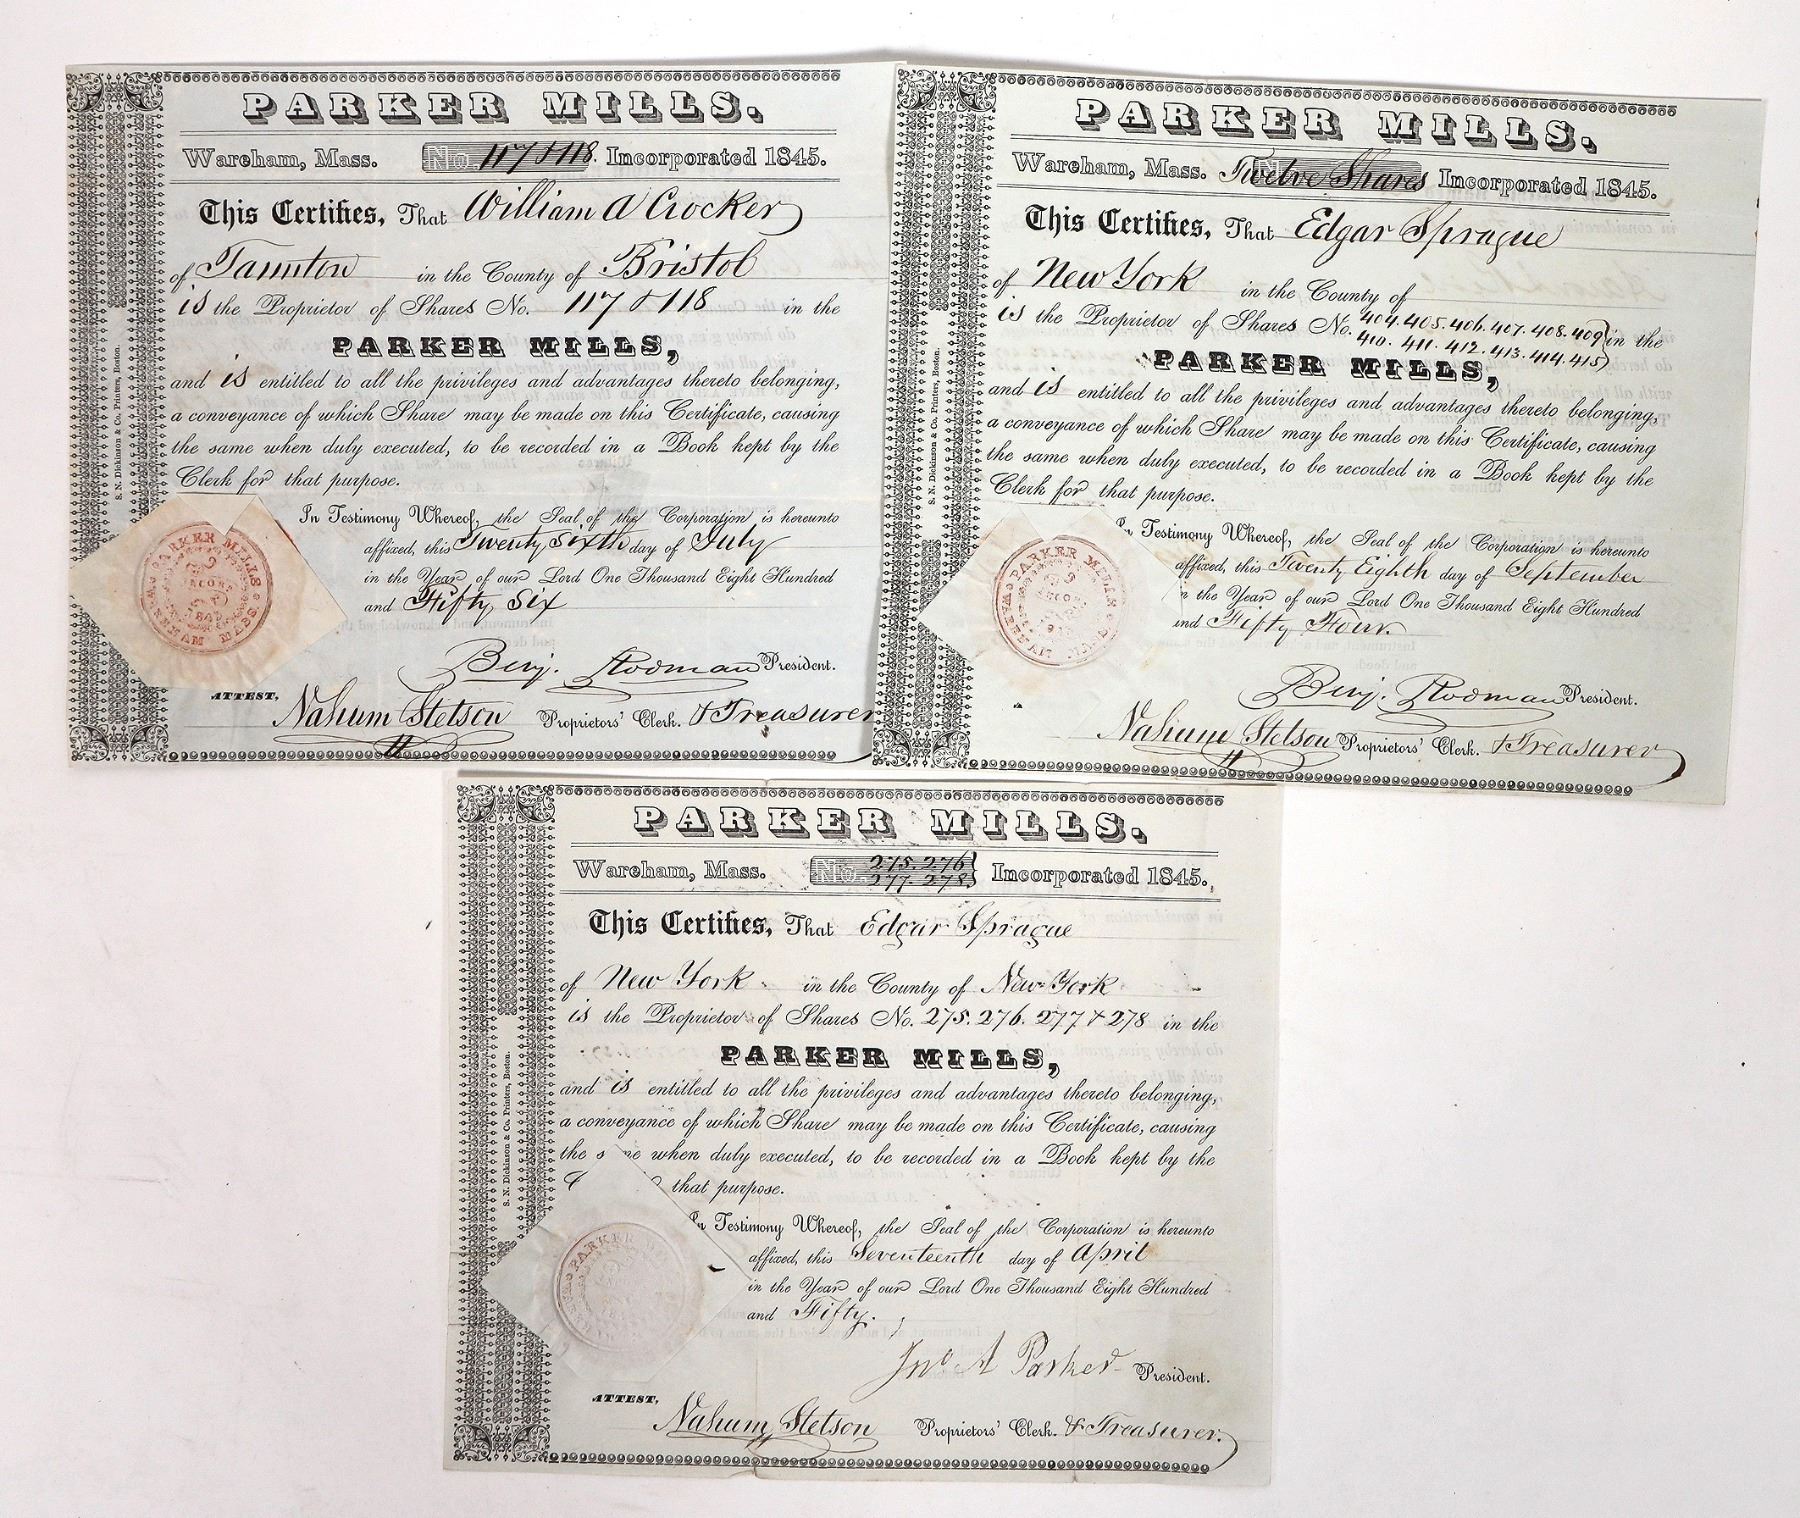 PARKER MILLS.
Wareham, Mass. No. 117 & 118. Incorporated 1845.
This Certifies, That William A Crocker
of Taunton in the County of Bristol
is the Proprietor of Shares No. 117 & 118 in the
PARKER MILLS,
and is entitled to all the privileges and advantages thereto belonging,
a conveyance of which Share may be made on this Certificate, causing
the same when duly executed, to be recorded in a Book kept by the
Clerk for that purpose.
In Testimony Whereof, the Seal of the Corporation is hereunto
affixed, this Twenty Sixth day of July
in the Year of our Lord One Thousand Eight Hundred
and Fifty Six
Benj. Rodman President.
ATTEST,
Nahum Stetson Proprietors' Clerk. & Treasurer
S. N. Dickinson & Co. Printers, Boston.
PARKER MILLS
WAREHAM MASS.
1845
PARKER MILLS.
Wareham, Mass. Twelve Shares Incorporated 1845.
This Certifies, That Edgar Sprague
of New York in the County of
is the Proprietor of Shares No. 404. 405. 406. 407. 408. 409 in the
410. 411. 412. 413. 414. 415
PARKER MILLS,
and is entitled to all the privileges and advantages thereto belonging,
a conveyance of which Share may be made on this Certificate, causing
the same when duly executed, to be recorded in a Book kept by the
Clerk for that purpose.
In Testimony Whereof, the Seal of the Corporation is hereunto
affixed, this Twenty Eighth day of September
in the Year of our Lord One Thousand Eight Hundred
and Fifty Four.
Benj. Rodman President.
Nahum Stetson Proprietors' Clerk. & Treasurer
S. N. Dickinson & Co. Printers, Boston.
PARKER MILLS
WAREHAM MASS.
1845
PARKER MILLS.
Wareham, Mass. No. 275. 276 Incorporated 1845.
277. 278
This Certifies, That Edgar Sprague
of New York in the County of New York
is the Proprietor of Shares No. 275. 276. 277 & 278 in the
PARKER MILLS,
and is entitled to all the privileges and advantages thereto belonging,
a conveyance of which Share may be made on this Certificate, causing
the s me when duly executed, to be recorded in a Book kept by the
C that purpose.
In Testimony Whereof, the Seal of the Corporation is hereunto
affixed, this Seventeenth day of April
in the Year of our Lord One Thousand Eight Hundred
and Fifty.
Jno A Parker President.
ATTEST,
Nahum Stetson Proprietors' Clerk. & Treasurer.
S. N. Dickinson & Co. Printers, Boston.
PARKER